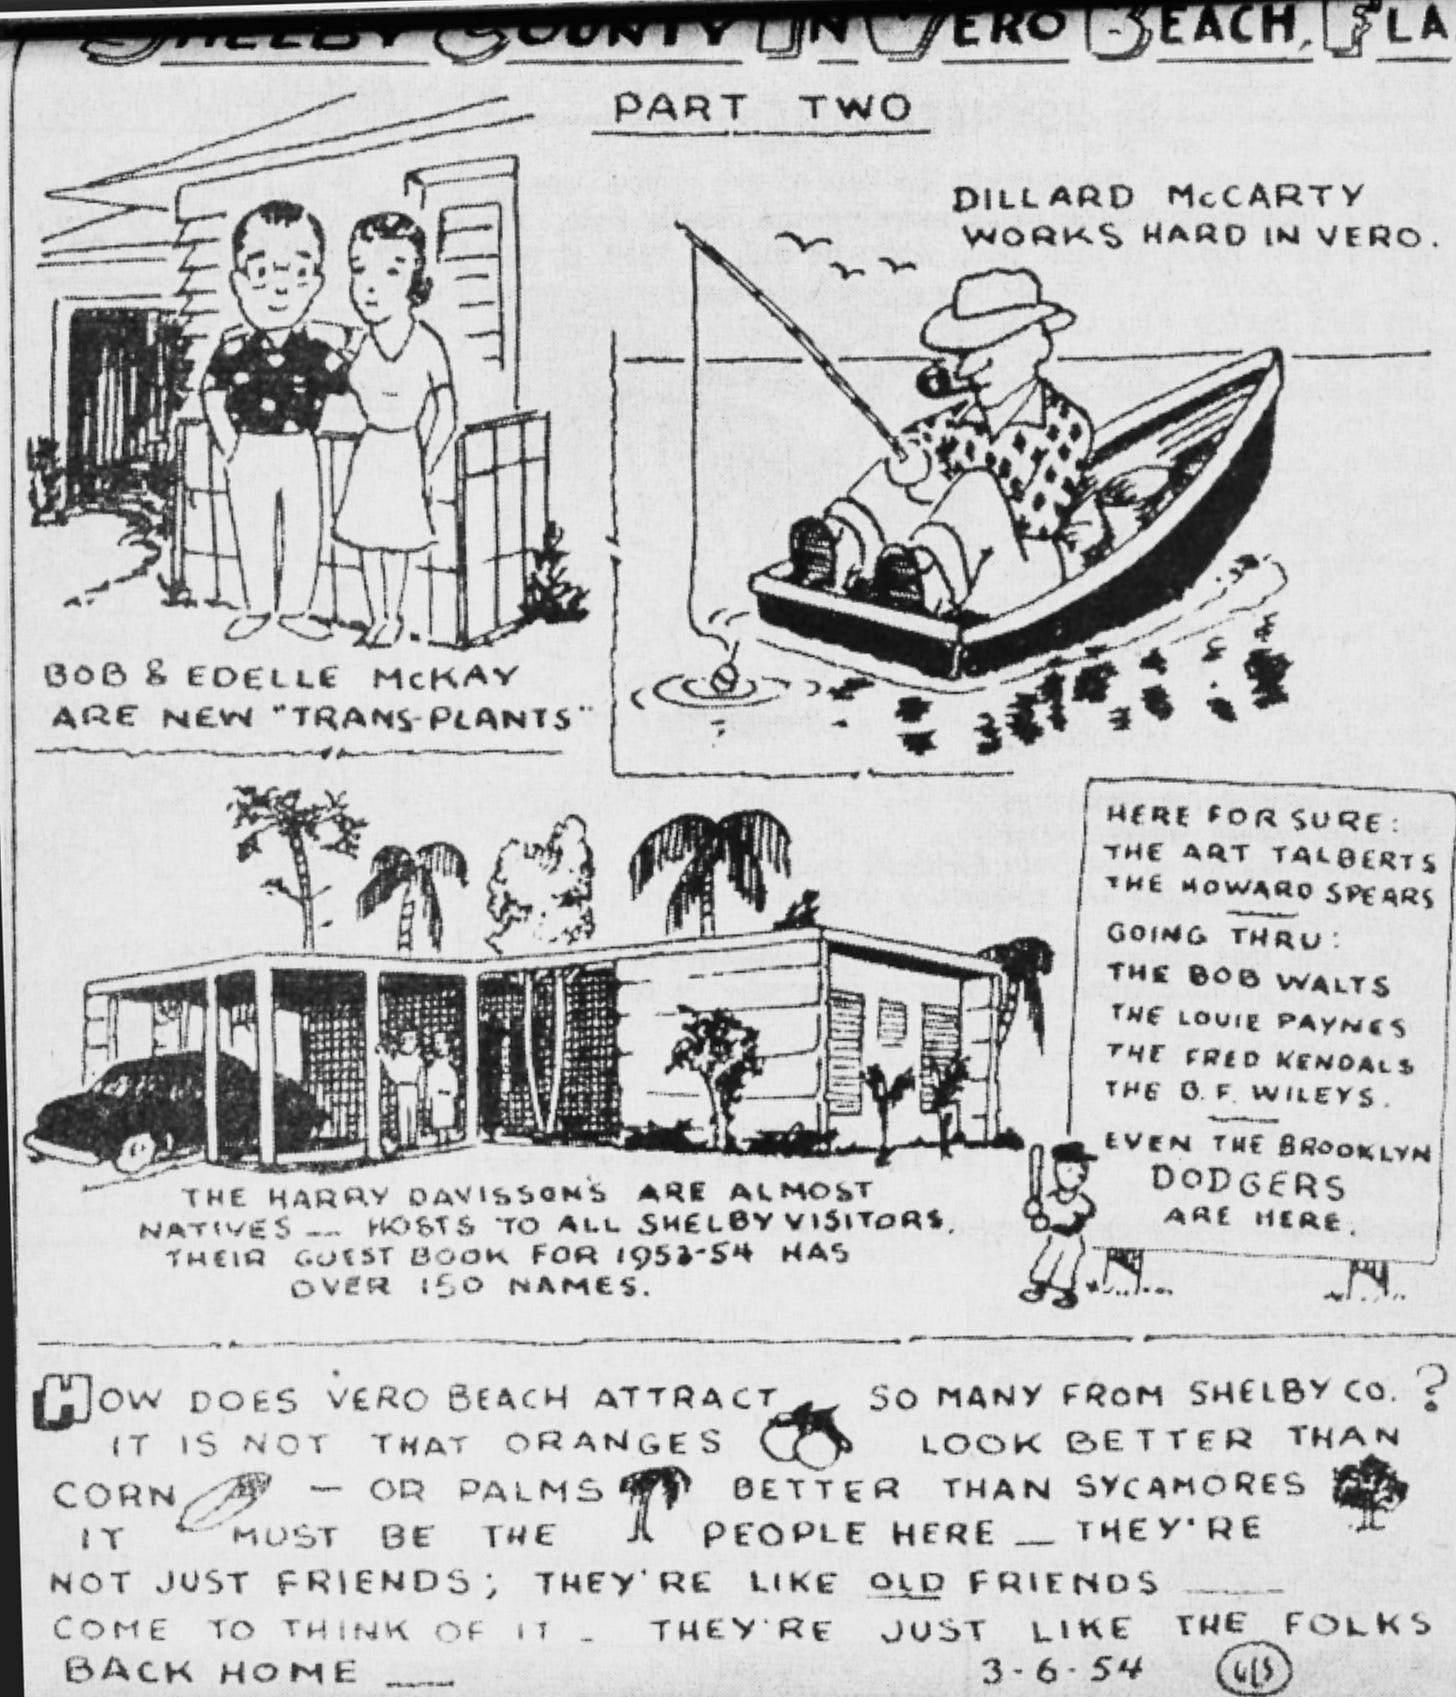 SHELBY COUNTY IN VERO BEACH, FLA
PART TWO
DILLARD McCARTY
WORKS HARD IN VERO.
BOB & EDELLE McKAY
ARE NEW "TRANS-PLANTS"
HERE FOR SURE:
THE ART TALBERTS
THE HOWARD SPEARS
GOING THRU:
THE BOB WALTS
THE LOUIE PAYNES
THE FRED KENDALS
THE O.F. WILEYS.
EVEN THE BROOKLYN
DODGERS
ARE HERE.
THE HARRY DAVISSON'S ARE ALMOST
NATIVES — HOSTS TO ALL SHELBY VISITORS.
THEIR GUEST BOOK FOR 1953-54 HAS
OVER 150 NAMES.
HOW DOES VERO BEACH ATTRACT SO MANY FROM SHELBY CO.?
IT IS NOT THAT ORANGES LOOK BETTER THAN
CORN — OR PALMS BETTER THAN SYCAMORES
IT MUST BE THE PEOPLE HERE — THEY'RE
NOT JUST FRIENDS; THEY'RE LIKE OLD FRIENDS —
COME TO THINK OF IT - THEY'RE JUST LIKE THE FOLKS
BACK HOME —
3-6-54